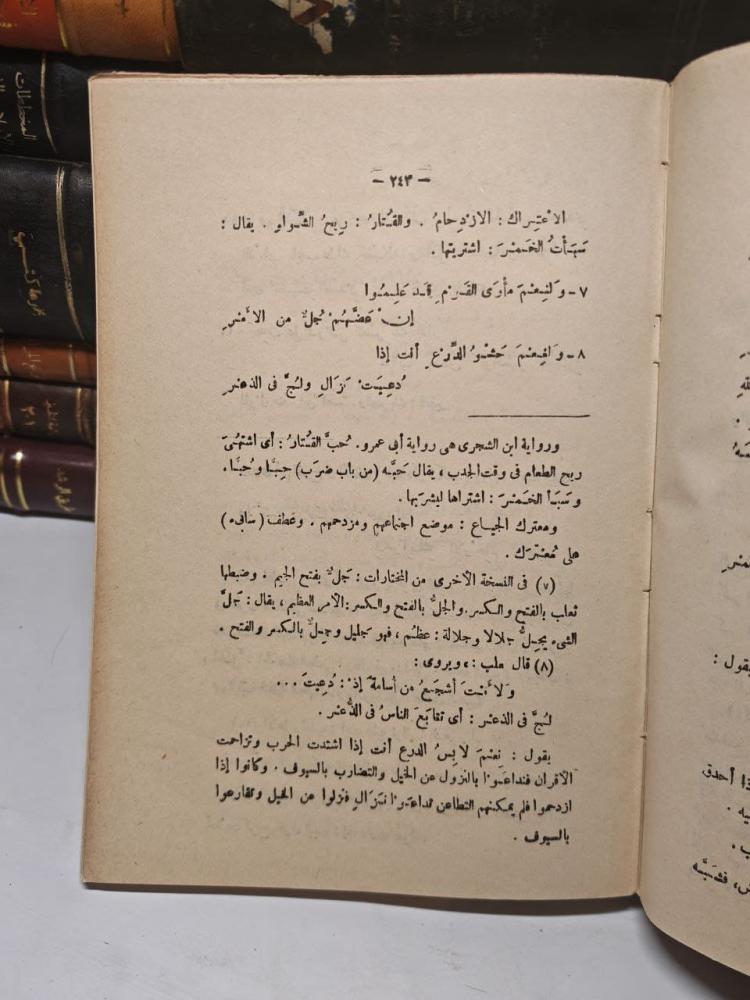 — ٢٤٣ —
الاعْتِراك : الازْدِحامُ . والقُتَارُ : رِيحُ الشِّواءِ . يقال :
سَبَأْتُ الخَمْرَ : اشتريتها .
٧ – وَلَنِعْمَ مَأْوَى القَوْمِ قَدْ عَلِمُوا
إنْ عَضَّهُمْ جُلٌّ من الأَمْرِ
٨ – وَلَنِعْمَ حَشْوُ الدِّرْعِ أنت إذا
دُعِيَتْ نَزَالِ ولُجَّ فى الذعْرِ
ورواية ابن الشجرى هى رواية أبى عمرو. حُبَّ القُتَارُ : أى اشتهى
ريح الطعام فى وقت الجدب ، يقال حَبَّه (من باب ضرب) حِبًّا وحُبًّا .
وسَبَأَ الخَمْرَ : اشتراها ليشربها .
ومعترك الجياع : موضع اجتماعهم ومزدحمهم . وعَطَف (سابىء)
على مُعْتَرَك .
(٧) فى النسخة الأخرى من المختارات : جَلٌّ بفتح الجيم . وضبطها
ثعلب بالفتح والكسر. والجلُّ بالفتح والكسر : الأمر العظيم ، يقال : جَلَّ
الشىء يجِلُّ جلالا وجلالة : عظُم ، فهو جليل وجِلٌّ بالكسر والفتح .
(٨) قال علب : ، ويروى :
وَلأَنْتَ أشجَعُ من أسامةَ إذْ : دُعِيتَ ...
لُجَّ فى الذعْر : أى تتابَعَ الناسُ فى الذُّعْر .
يقول : نعْمَ لابِسُ الدرع أنت إذا اشتدت الحرب وتزاحمت
الأقران فتداعَوْا بالنزول عن الخيل والتضارب بالسيوف . وكانوا إذا
ازدحموا فلم يمكنهم التطاعن تداعَوْا نَزَالِ فنزلوا عن الخيل وتقارعوا
بالسيوف .
المختارات
يقول :
ذا أحدق
يه .
ب .
فشبَّه